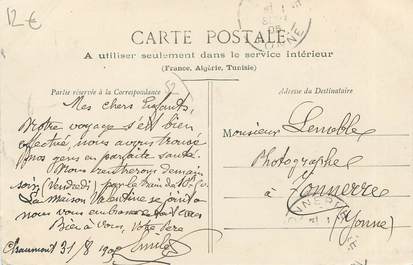 12€
CARTE POSTALE
A utiliser seulement dans le service intérieur
(France, Algérie, Tunisie)
Partie réservée à la Correspondance
Adresse du Destinataire
Mes chers Enfants,
Notre voyage s'est bien
effectué, nous avons trouvé
nos gens en parfaite santé.
Nous rentrerons demain
soir (Vendredi) par le train de
La maison Valentine se joint à
nous vous embrasse
Bien à vous, Votre Père
Chaumont 31/8 Emile
Monsieur Lemoble
Photographe
à Tonnerre
(Yonne)